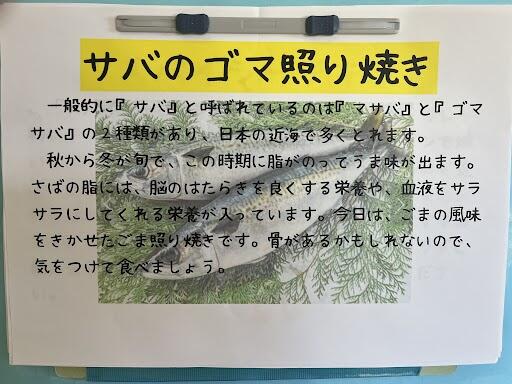 サバのゴマ照り焼き
一般的に『サバ』と呼ばれているのは『マサバ』と『ゴマ
サバ』の２種類があり、日本の近海で多くとれます。
秋から冬が旬で、この時期に脂がのってうま味が出ます。
さばの脂には、脳のはたらきを良くする栄養や、血液をサラ
サラにしてくれる栄養が入っています。今日は、ごまの風味
をきかせたごま照り焼きです。骨があるかもしれないので、
気をつけて食べましょう。